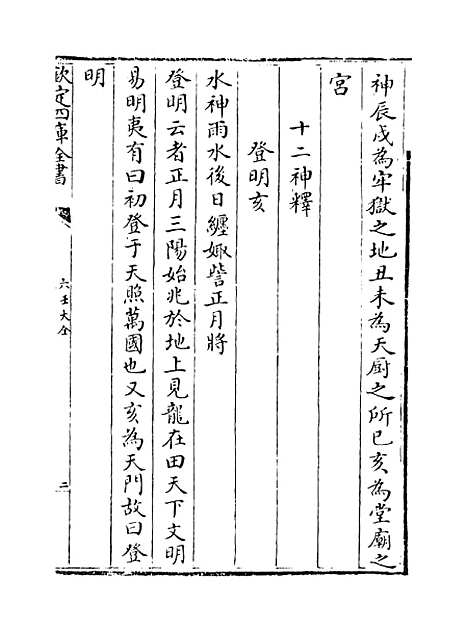 神辰戌為牢獄之地丑未為天厨之所巳亥為堂廟之
宮
十二神釋
登明亥
水神雨水後日纏娵訾正月將
登明云者正月三陽始兆於地上見龍在田天下文明
易明夷有曰初登于天照萬國也又亥為天門故曰登
明
欽定四庫全書
六壬大全
三